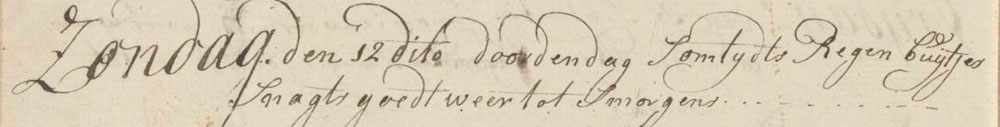 Zondag. den 12 dito doordendag Somtydts Regen buÿtjes
Snagts goedt weer tot Smorgens . . . . . . . . . .